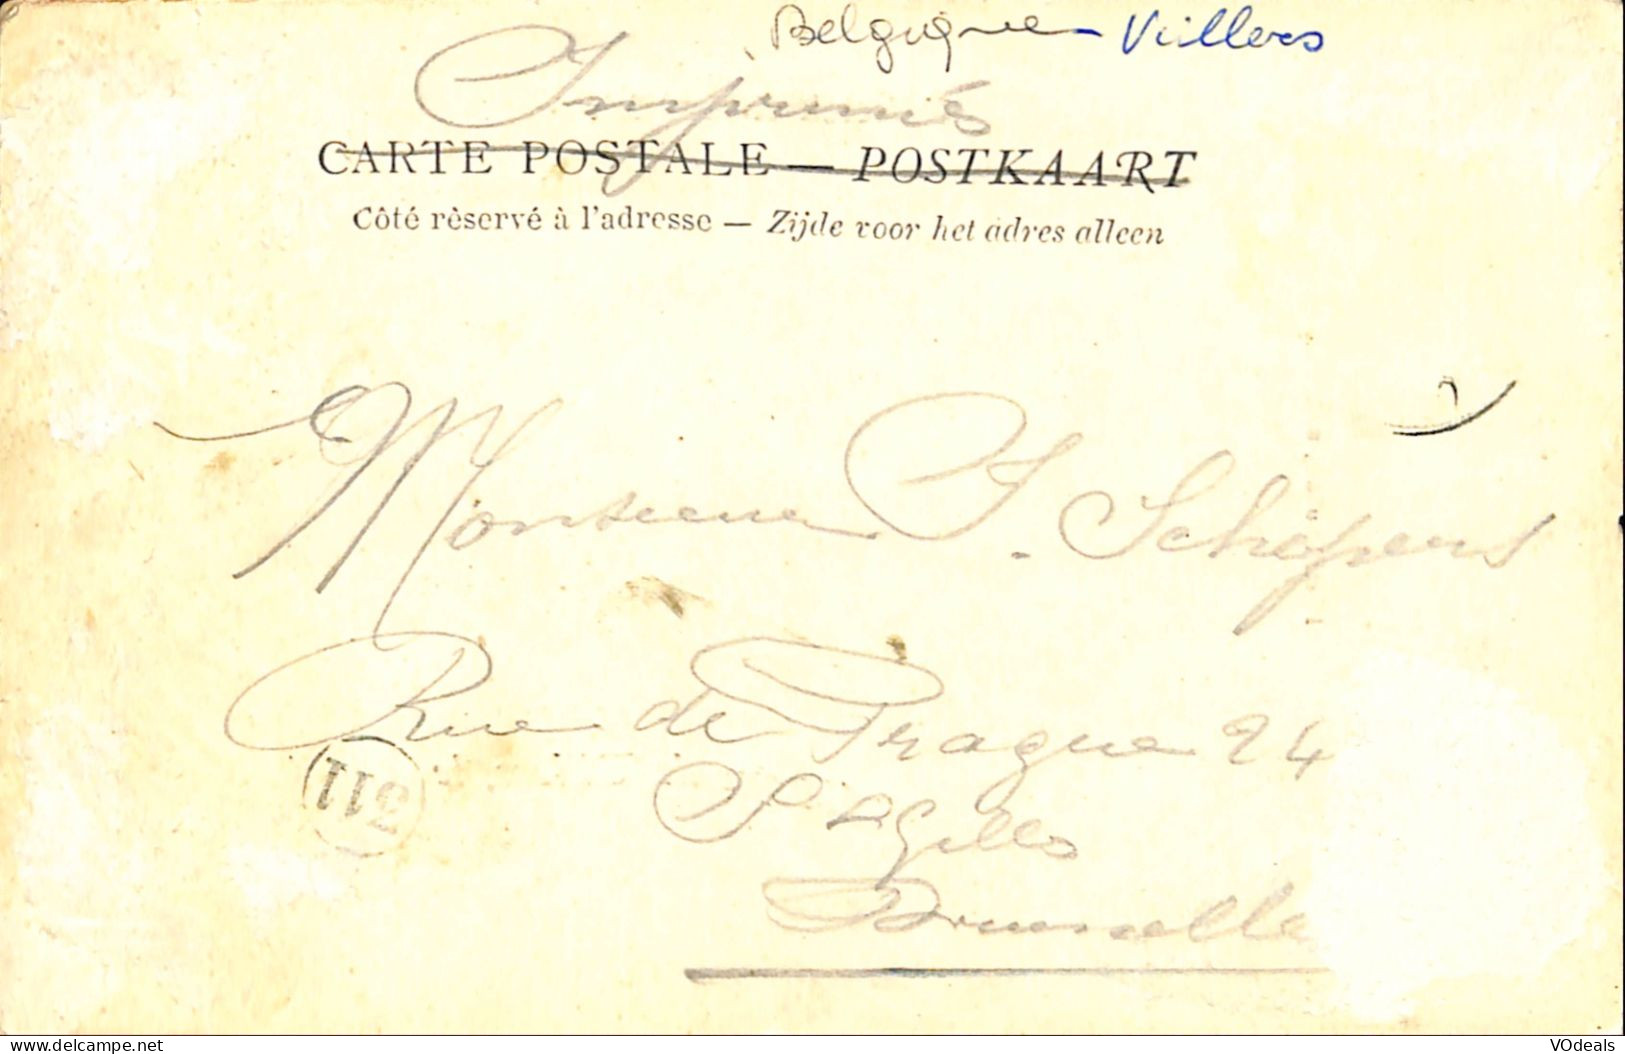 Belgique - Villers
Imprimés
CARTE POSTALE — POSTKAART
Côté rèservé à l'adresse — Zijde voor het adres alleen
Monsieur J. Schepers
Rue de Prague 24
St Gilles
Bruxelles
311
https://www.delcampe.net
VOdeals